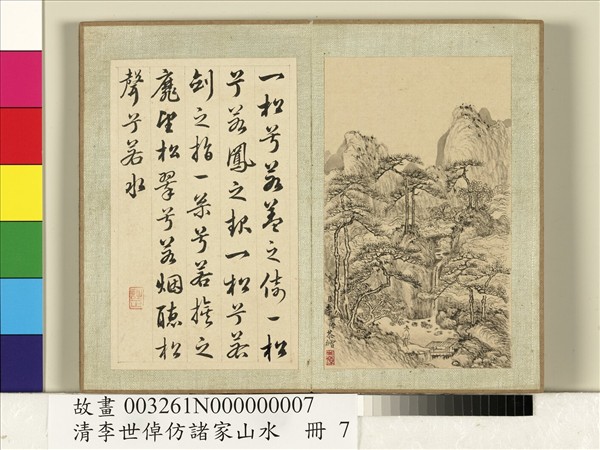 一松兮若蓋之倚一松
兮若鳳之 一松兮若
劍之指一 兮若 之
麾望松翠兮若烟聽松
聲兮若水
故畫 003261N000000007
清李世倬仿諸家山水　冊 7